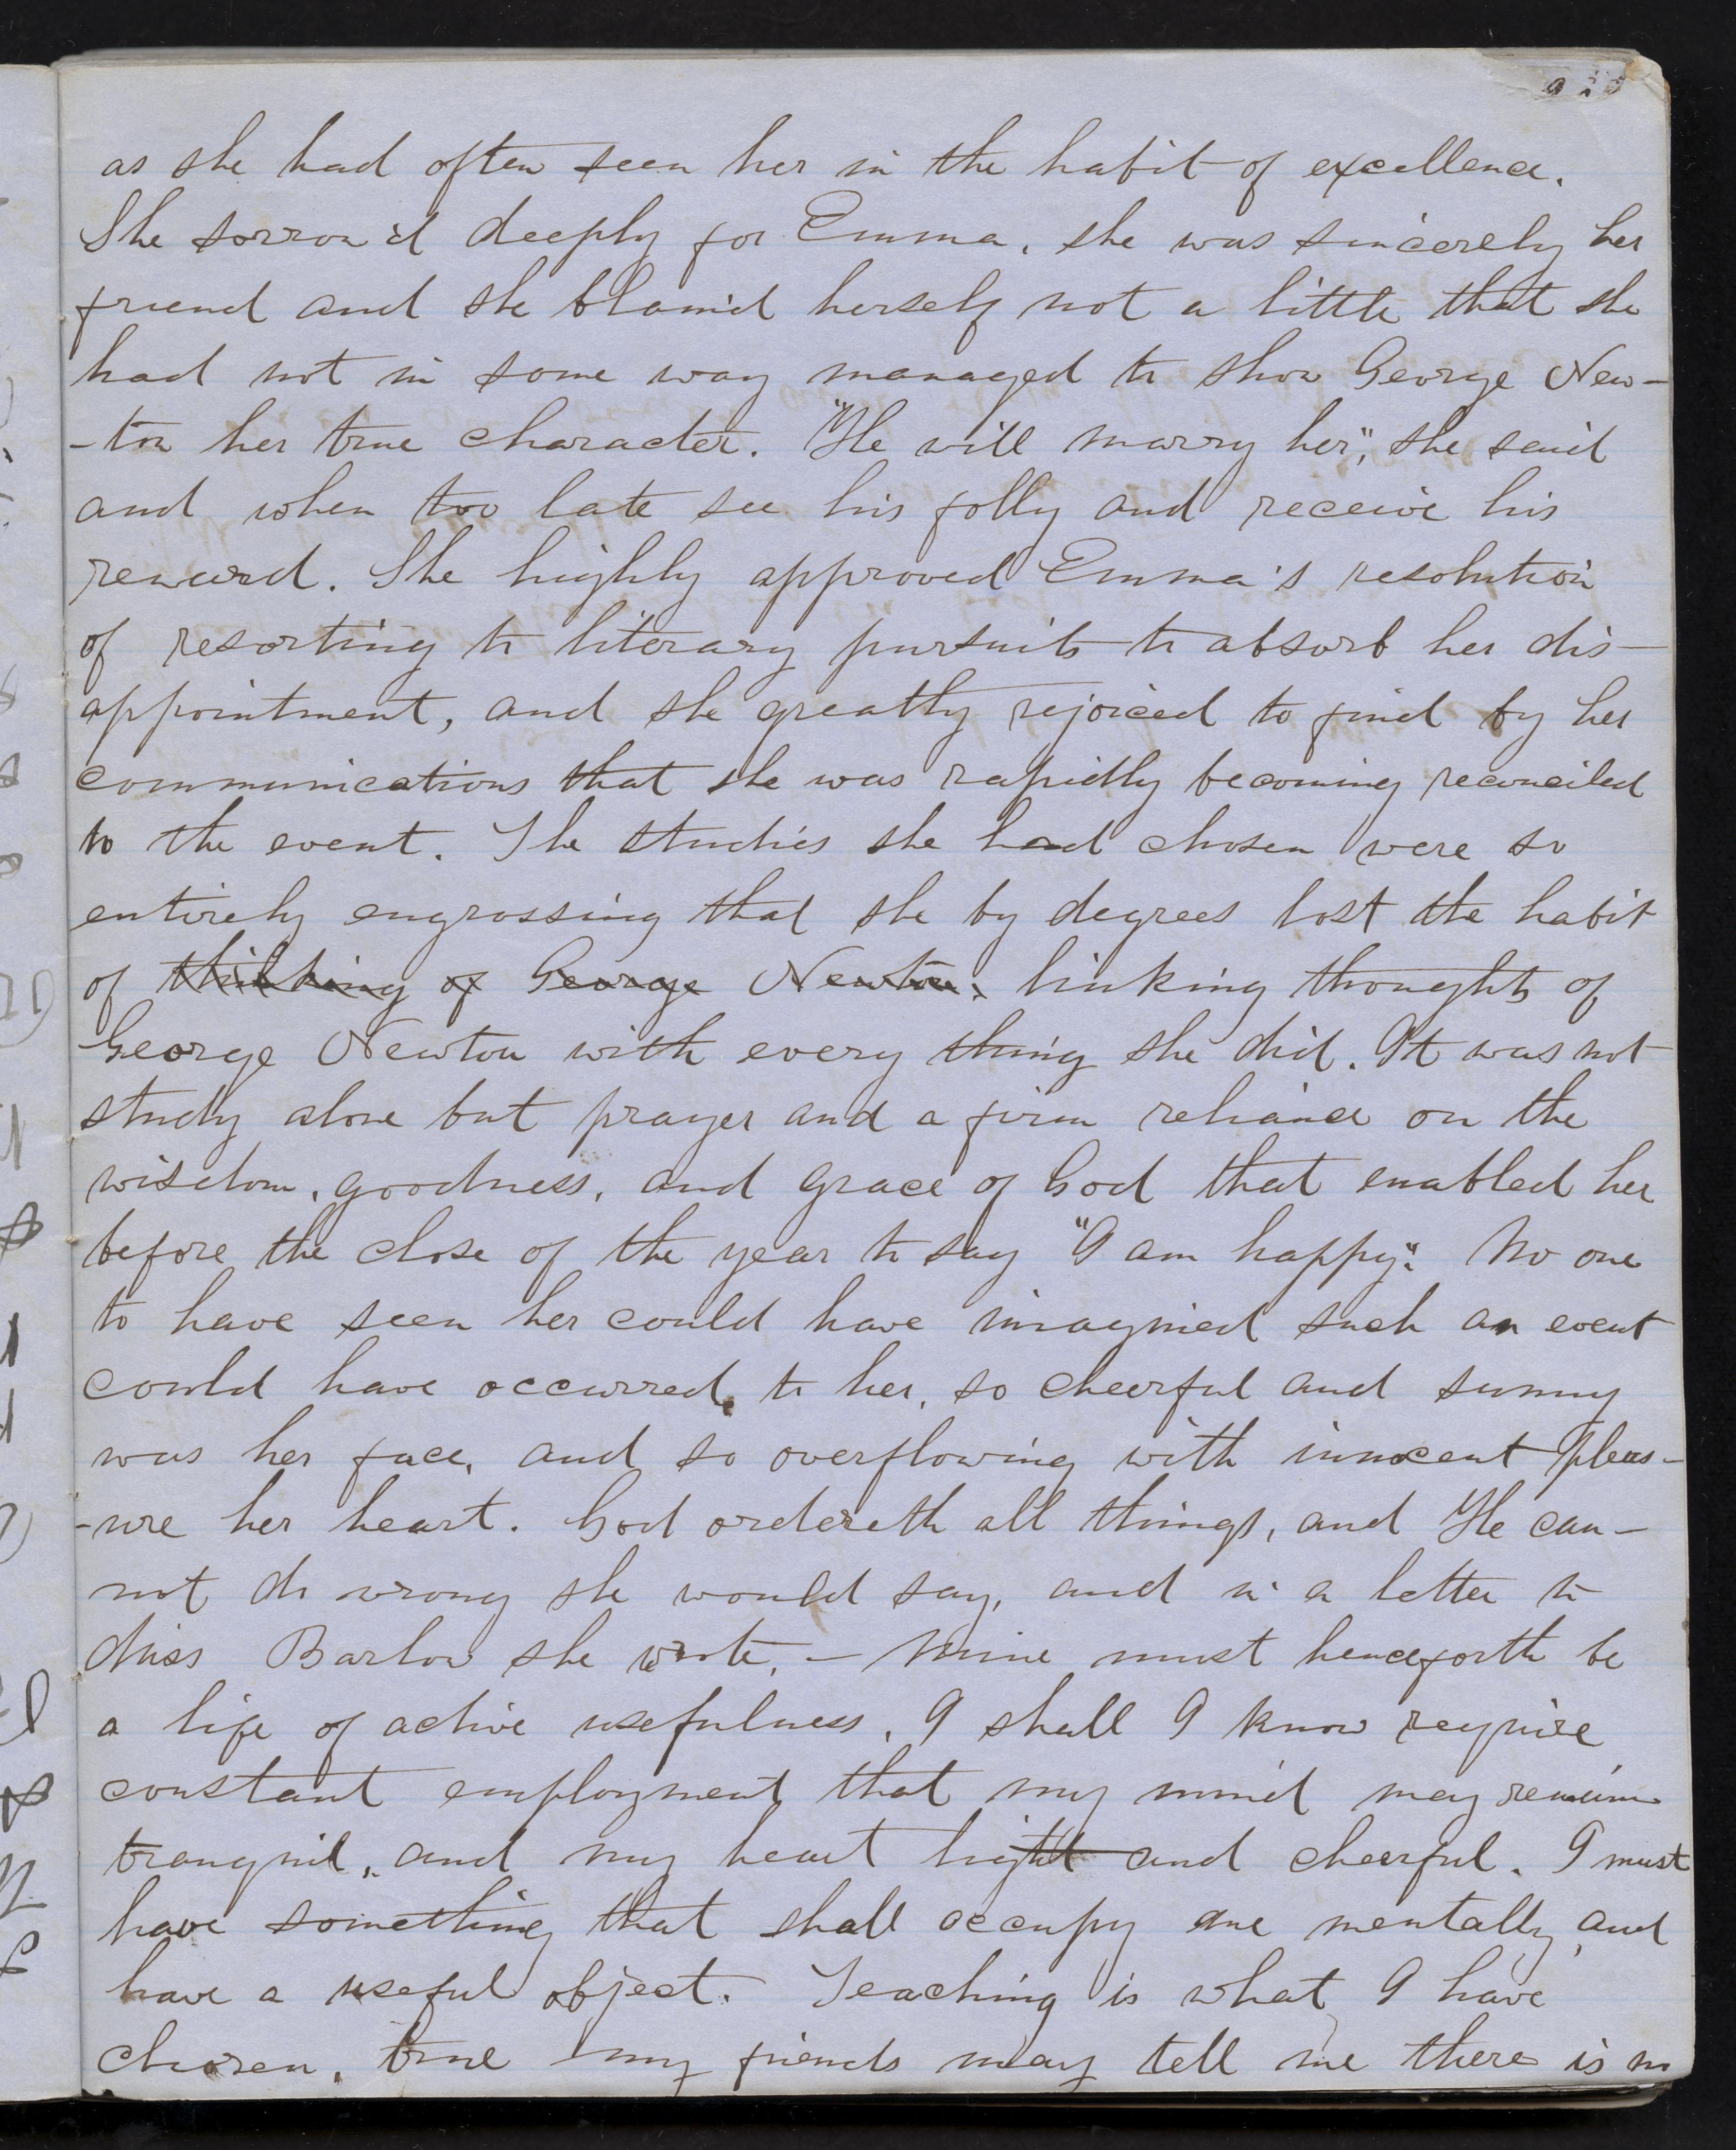 as she had often seen her in the habit of excellence.
She sorrow'd deeply for Emma, she was sincerely her
friend and she blam'd herself not a little that she
had not in some way managed to show George New-
-ton her true character. "He will marry her", she said
and when too late see his folly and receive his
reward. She highly approved Emma's resolution
of resorting to literary pursuits to absorb her dis-
appointment, and she greatly rejoiced to find by her
communications that she was rapidly becoming reconciled
to the event. The studies she had chosen were so
entirely engrossing that she by degrees lost the habit
of thinking of George Newton. linking thoughts of
George Newton with every thing she did. It was not
study alone but prayer and a firm reliance on the
wisdom, goodness, and grace of God that enabled her
before the close of the year to say "I am happy". No one
to have seen her could have imagined such an event
could have occurred, to her, so cheerful and sunny
was her face, and so overflowing with innocent pleas-
-ure her heart. God ordereth all things, and He can-
not do wrong she would say, and in a letter to
Miss Barlow she wrote, - Mine must henceforth be
a life of active usefulness, I shall I know require
constant employment that my mind may remain
tranquil, and my heart light and cheerful. I must
have something that shall occupy me mentally, and
have a useful object. Teaching is what I have
chosen, true my friends may tell me there is no